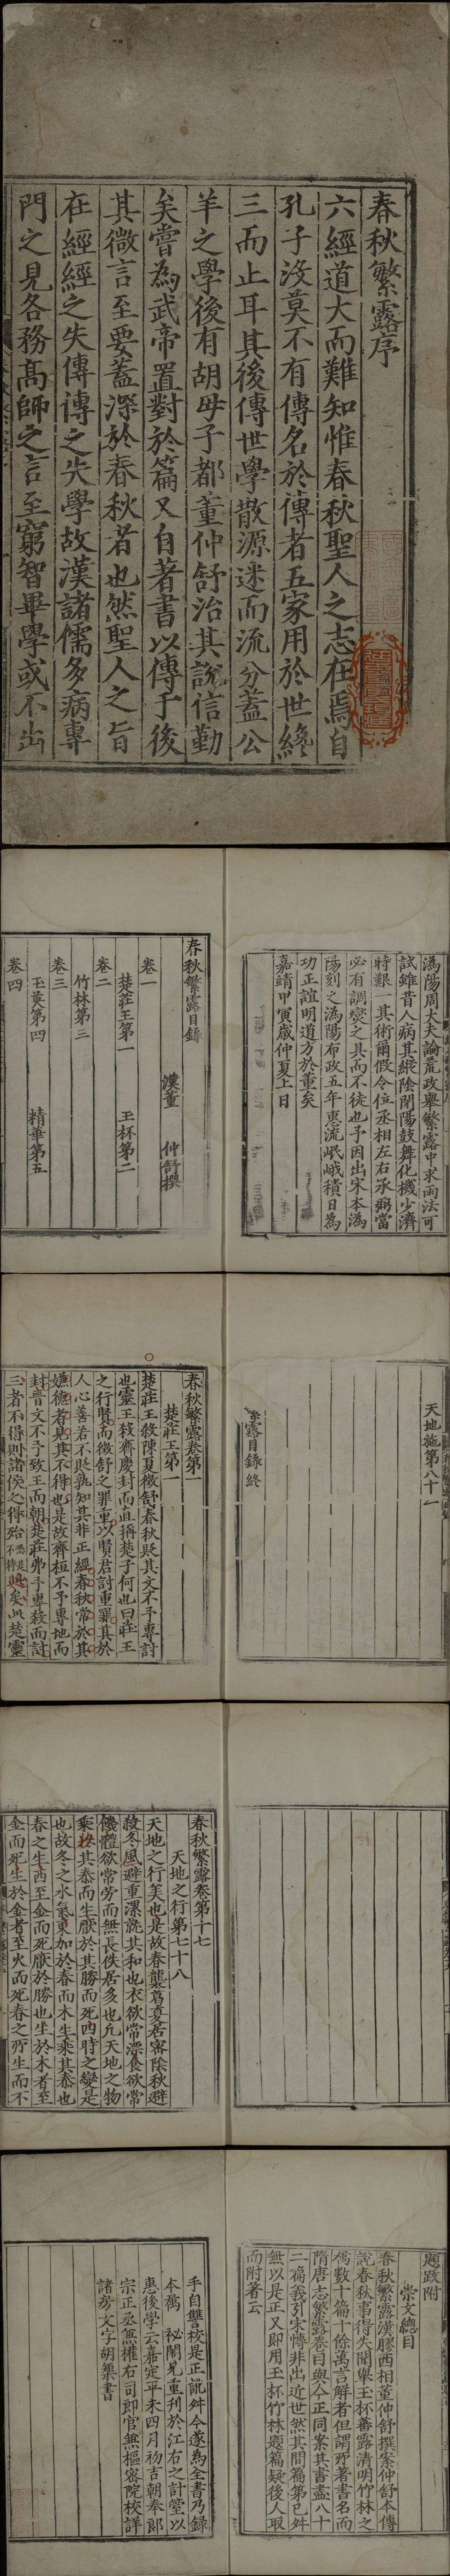 春秋繁露序
六經道大而難知惟春秋聖人之志在焉自
孔子沒莫不有傳名於傳者五家用於世纔
三而止耳其後傳世學散源迷而流分蓋公
羊之學後有胡毋子都董仲舒治其說信勤
矣嘗為武帝置對於篇又自著書以傳于後
其微言至要蓋深於春秋者也然聖人之旨
在經經之失傳傳之失學故漢諸儒多病專
門之見各務高師之言至窮智畢學或不出
溈陽周大夫論荒政舉繁露中求雨法可
試雖昔人病其縱陰閉陽鼓舞化機少濟
時艱一其術爾假令位丞相左右承弼當
必有調燮之具而不徒也予因出宋本溈
陽刻之溈陽布政五年惠流岷峨積日為
功正誼明道方於董矣
嘉靖甲寅歲仲夏上日
春秋繁露目錄
漢董 仲舒撰
卷一
楚莊王第一 玉杯第二
卷二
竹林第三
卷三
玉英第四 精華第五
卷四
天地施第八十一
繁露目錄終
春秋繁露卷第一
楚莊王第一
楚莊王殺陳夏徵舒春秋貶其文不予專討
也靈王殺齊慶封而直稱楚子何也曰莊王
之行賢而徵舒之罪重以賢君討重罪其於
人心善若不貶孰知其非正經春秋常於其
嫌得者見其不得也是故齊桓不予專地而
封晉文不予致王而朝楚莊弗予專殺而討
三者不得則諸侯之得殆此矣此楚靈
春秋繁露卷第十七
天地之行第七十八
天地之行美也是故春襲葛夏居密陰秋避
殺冬風避重漯就其和也衣欲常漂食欲常
饑體欲常勞而無長佚居多也凡天地之物
乘於其泰而生厭於其勝而死四時之變是
也故冬之水氣東加於春而木生乘其泰也
春之生西至金而死厭於勝也生於木者至
金而死生於金者至火而死春之所生而不
題跋附
崇文總目
春秋繁露漢膠西相董仲舒撰案仲舒本傳
說春秋事得失聞舉玉杯蕃露清明竹林之
屬數十篇十餘萬言解者但謂所著書名而
隋唐志繁露卷目與今正同案其書盡八十
二篇義引宋博非出近世然其間篇第已舛
無以是正又即用玉杯竹林題篇疑後人取
而附著云
手自讎校是正訛舛今遂為全書乃錄
本萬 祕閣見重刊於江右之計臺以
惠後學云嘉定辛未四月初吉朝奉郎
宗正丞兼權右司郎官兼樞密院校詳
諸房文字胡榘書